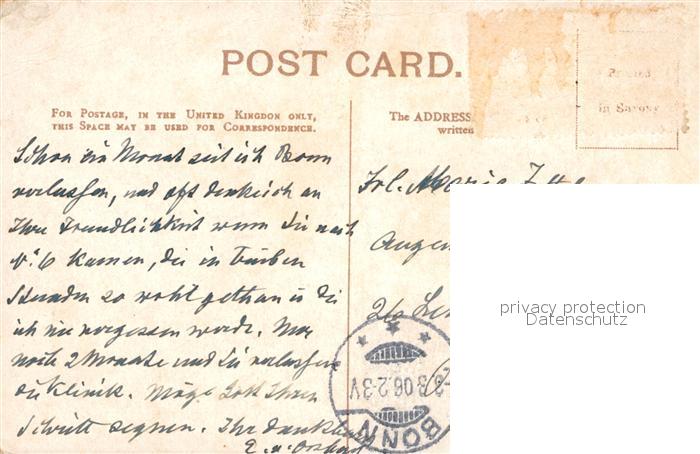 POST CARD.
FOR POSTAGE, IN THE UNITED KINGDOM ONLY,
THIS SPACE MAY BE USED FOR CORRESPONDENCE.
The ADDRESS
written
in Saxony
Schon ein Monat seit ich Bonn
verlassen, und oft denke ich an
Ihre Freundlichkeit wenn Sie nach
N° 6 kamen, die in trüben
Stunden so wohl gethan u die
ich nie vergessen werde. Nur
noch 2 Monate und Sie verlassen
die Klinik. Möge Gott Ihren
Schritt segnen. Ihr dankbare
Frl. Marie
Augen
BONN
privacy protection
Datenschutz